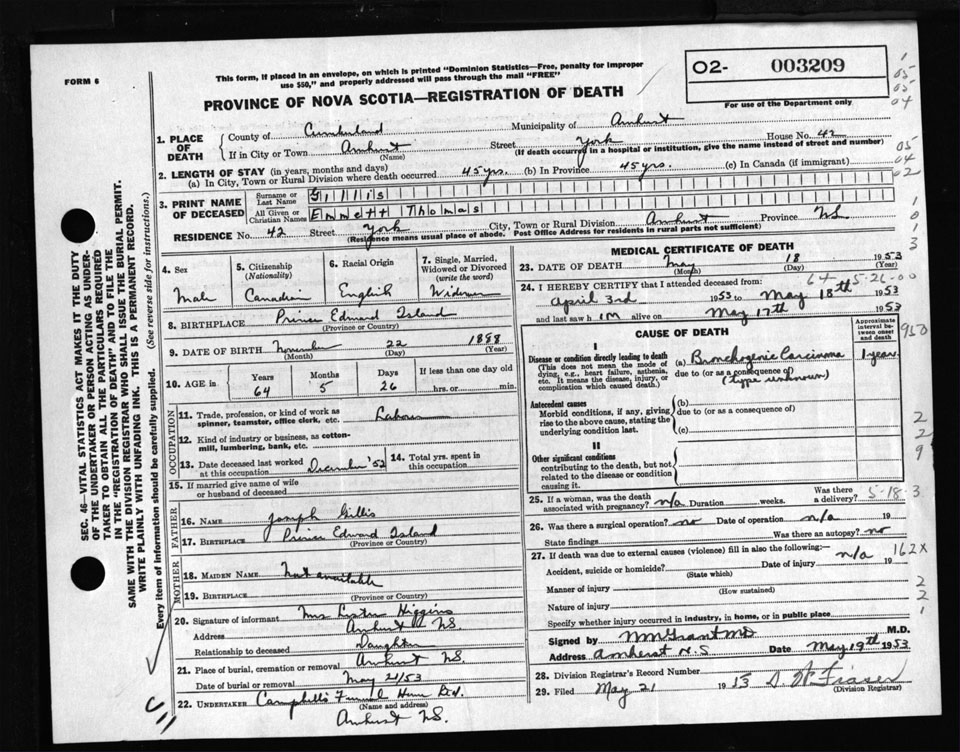 FORM 6
This form, if placed in an envelope, on which is printed "Dominion Statistics—Free, penalty for improper
use $50," and properly addressed will pass through the mail "FREE"
PROVINCE OF NOVA SCOTIA—REGISTRATION OF DEATH
O2- 003209
For use of the Department only
1. PLACE OF DEATH
County of Cumberland Municipality of Amherst
If in City or Town Amherst (Name) Street York House No. 42
(If death occurred in a hospital or institution, give the name instead of street and number)
2. LENGTH OF STAY (in years, months and days)
(a) In City, Town or Rural Division where death occurred 45 yrs. (b) In Province 45 yrs. (c) In Canada (if immigrant)
3. PRINT NAME OF DECEASED
Surname or Last Name Gillis
All Given or Christian Names Emmett Thomas
RESIDENCE No. 42 Street York City, Town or Rural Division Amherst Province NS
(Residence means usual place of abode. Post Office Address for residents in rural parts not sufficient)
4. Sex Male
5. Citizenship (Nationality) Canadian
6. Racial Origin English
7. Single, Married, Widowed or Divorced (write the word) Widower
8. BIRTHPLACE Prince Edward Island
(Province or Country)
9. DATE OF BIRTH November 22 1888
(Month) (Day) (Year)
10. AGE in Years 64 Months 5 Days 26 If less than one day old hrs. or min.
OCCUPATION
11. Trade, profession, or kind of work as spinner, teamster, office clerk, etc. Labour
12. Kind of industry or business, as cotton-mill, lumbering, bank, etc.
13. Date deceased last worked at this occupation December '52
14. Total yrs. spent in this occupation
15. If married give name of wife or husband of deceased
FATHER
16. NAME Joseph Gillis
17. BIRTHPLACE Prince Edward Island
(Province or Country)
MOTHER
18. MAIDEN NAME Not available
19. BIRTHPLACE
(Province or Country)
20. Signature of informant Mrs Higgins
Address Amherst NS.
Relationship to deceased Daughter
21. Place of burial, cremation or removal Amherst NS.
Date of burial or removal May 21/53
22. UNDERTAKER Campbells Funeral Home Ltd.
(Name and address)
Amherst NS.
MEDICAL CERTIFICATE OF DEATH
23. DATE OF DEATH May 18 1953
(Month) (Day) (Year)
64-5-21-00
24. I HEREBY CERTIFY that I attended deceased from:
April 3rd 1953 to May 18th 1953
and last saw him alive on May 17th 1953
CAUSE OF DEATH
Approximate interval between onset and death
I
Disease or condition directly leading to death
(This does not mean the mode of dying, e.g., heart failure, asthenia, etc. It means the disease, injury, or complication which caused death.)
(a) Bronchogenic Carcinoma 1 year
due to (or as a consequence of) (type unknown)
Antecedent causes
Morbid conditions, if any, giving rise to the above cause, stating the underlying condition last.
(b)
due to (or as a consequence of)
(c)
II
Other significant conditions
contributing to the death, but not related to the disease or condition causing it.
25. If a woman, was the death associated with pregnancy? n/a Duration weeks. Was there a delivery? 5-18-3
26. Was there a surgical operation? no Date of operation n/a 19
State findings Was there an autopsy? no
27. If death was due to external causes (violence) fill in also the following:— n/a
Accident, suicide or homicide? Date of injury 19
(State which)
Manner of injury
(How sustained)
Nature of injury
Specify whether injury occurred in industry, in home, or in public place
Signed by M.D.
Address Amherst N.S Date May 19th 1953
28. Division Registrar's Record Number
29. Filed May 21 19 53 Fraser
(Division Registrar)
162X
SEC. 46—VITAL STATISTICS ACT MAKES IT THE DUTY
OF THE UNDERTAKER OR PERSON ACTING AS UNDER-
TAKER TO OBTAIN ALL THE PARTICULARS REQUIRED
IN THE "REGISTRATION OF DEATH" AND TO FILE THE
SAME WITH THE DIVISION REGISTRAR WHO SHALL ISSUE THE BURIAL PERMIT.
WRITE PLAINLY WITH UNFADING INK. THIS IS A PERMANENT RECORD.
Every item of information should be carefully supplied. (See reverse side for instructions.)